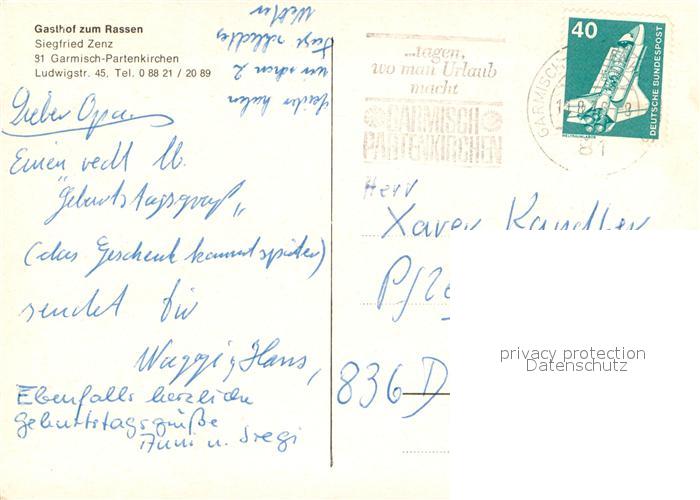 Gasthof zum Rassen
Siegfried Zenz
81 Garmisch-Partenkirchen
Ludwigstr. 45, Tel. 0 88 21 / 20 89
Leider haben
wir schon 2
Tage schlechtes
Wetter
Lieber Opa
Einen recht lb.
"Geburtstagsgruß"
(das Geschenk kommt später)
sendet Dir
Hans,
Ebenfalls herzliche
Geburtstagsgrüße
u. Siegi
...tagen,
wo man Urlaub
macht
GARMISCH
PARTENKIRCHEN
GARMISCH
81
40
DEUTSCHE BUNDESPOST
WELTRAUMLABOR
Herr
Xaver
836 D
privacy protection
Datenschutz